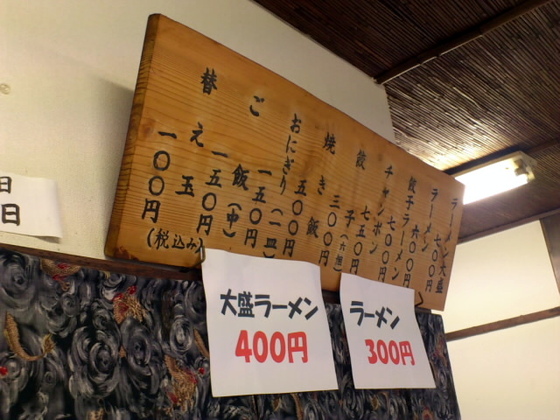 ラーメン大盛
七〇〇円
ラーメン
六〇〇円
餃子ラーメン
七〇〇円
チャンポン
七五〇円
餃子(六個)
三〇〇円
焼き飯
五〇〇円
おにぎり(一皿)
一五〇円
ご飯(中)
一五〇円
替え玉
一〇〇円
(税込み)
ラーメン
300円
大盛ラーメン
400円
日
日